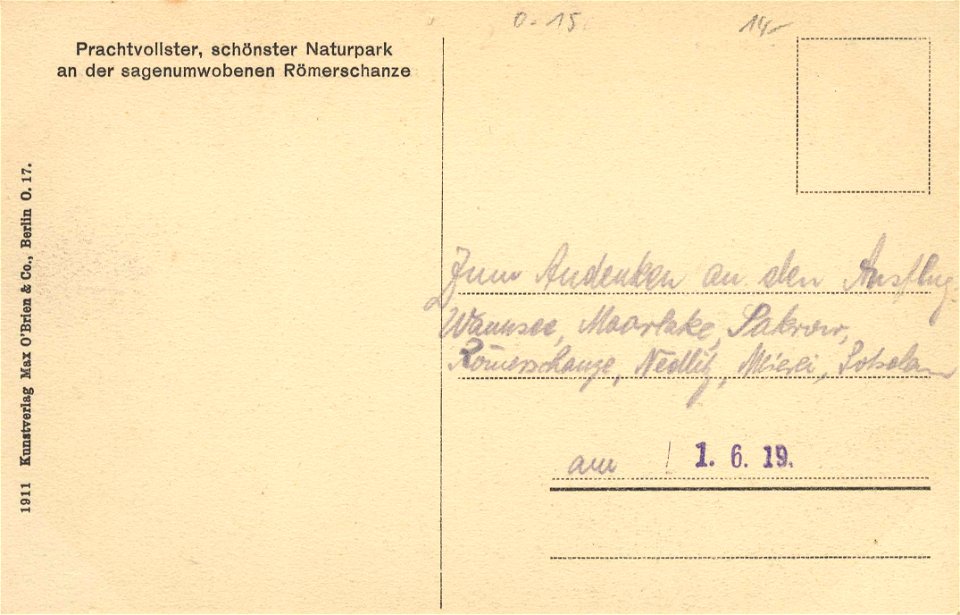 0.-15.
14.-
Prachtvollster, schönster Naturpark
an der sagenumwobenen Römerschanze
1911 Kunstverlag Max O'Brien & Co., Berlin O. 17.
Zum Andenken an den Ausflug
Wannsee, Moorlake, Sakrow,
Römerschanze, Nedlitz, Meierei, Potsdam
am 1. 6. 19.